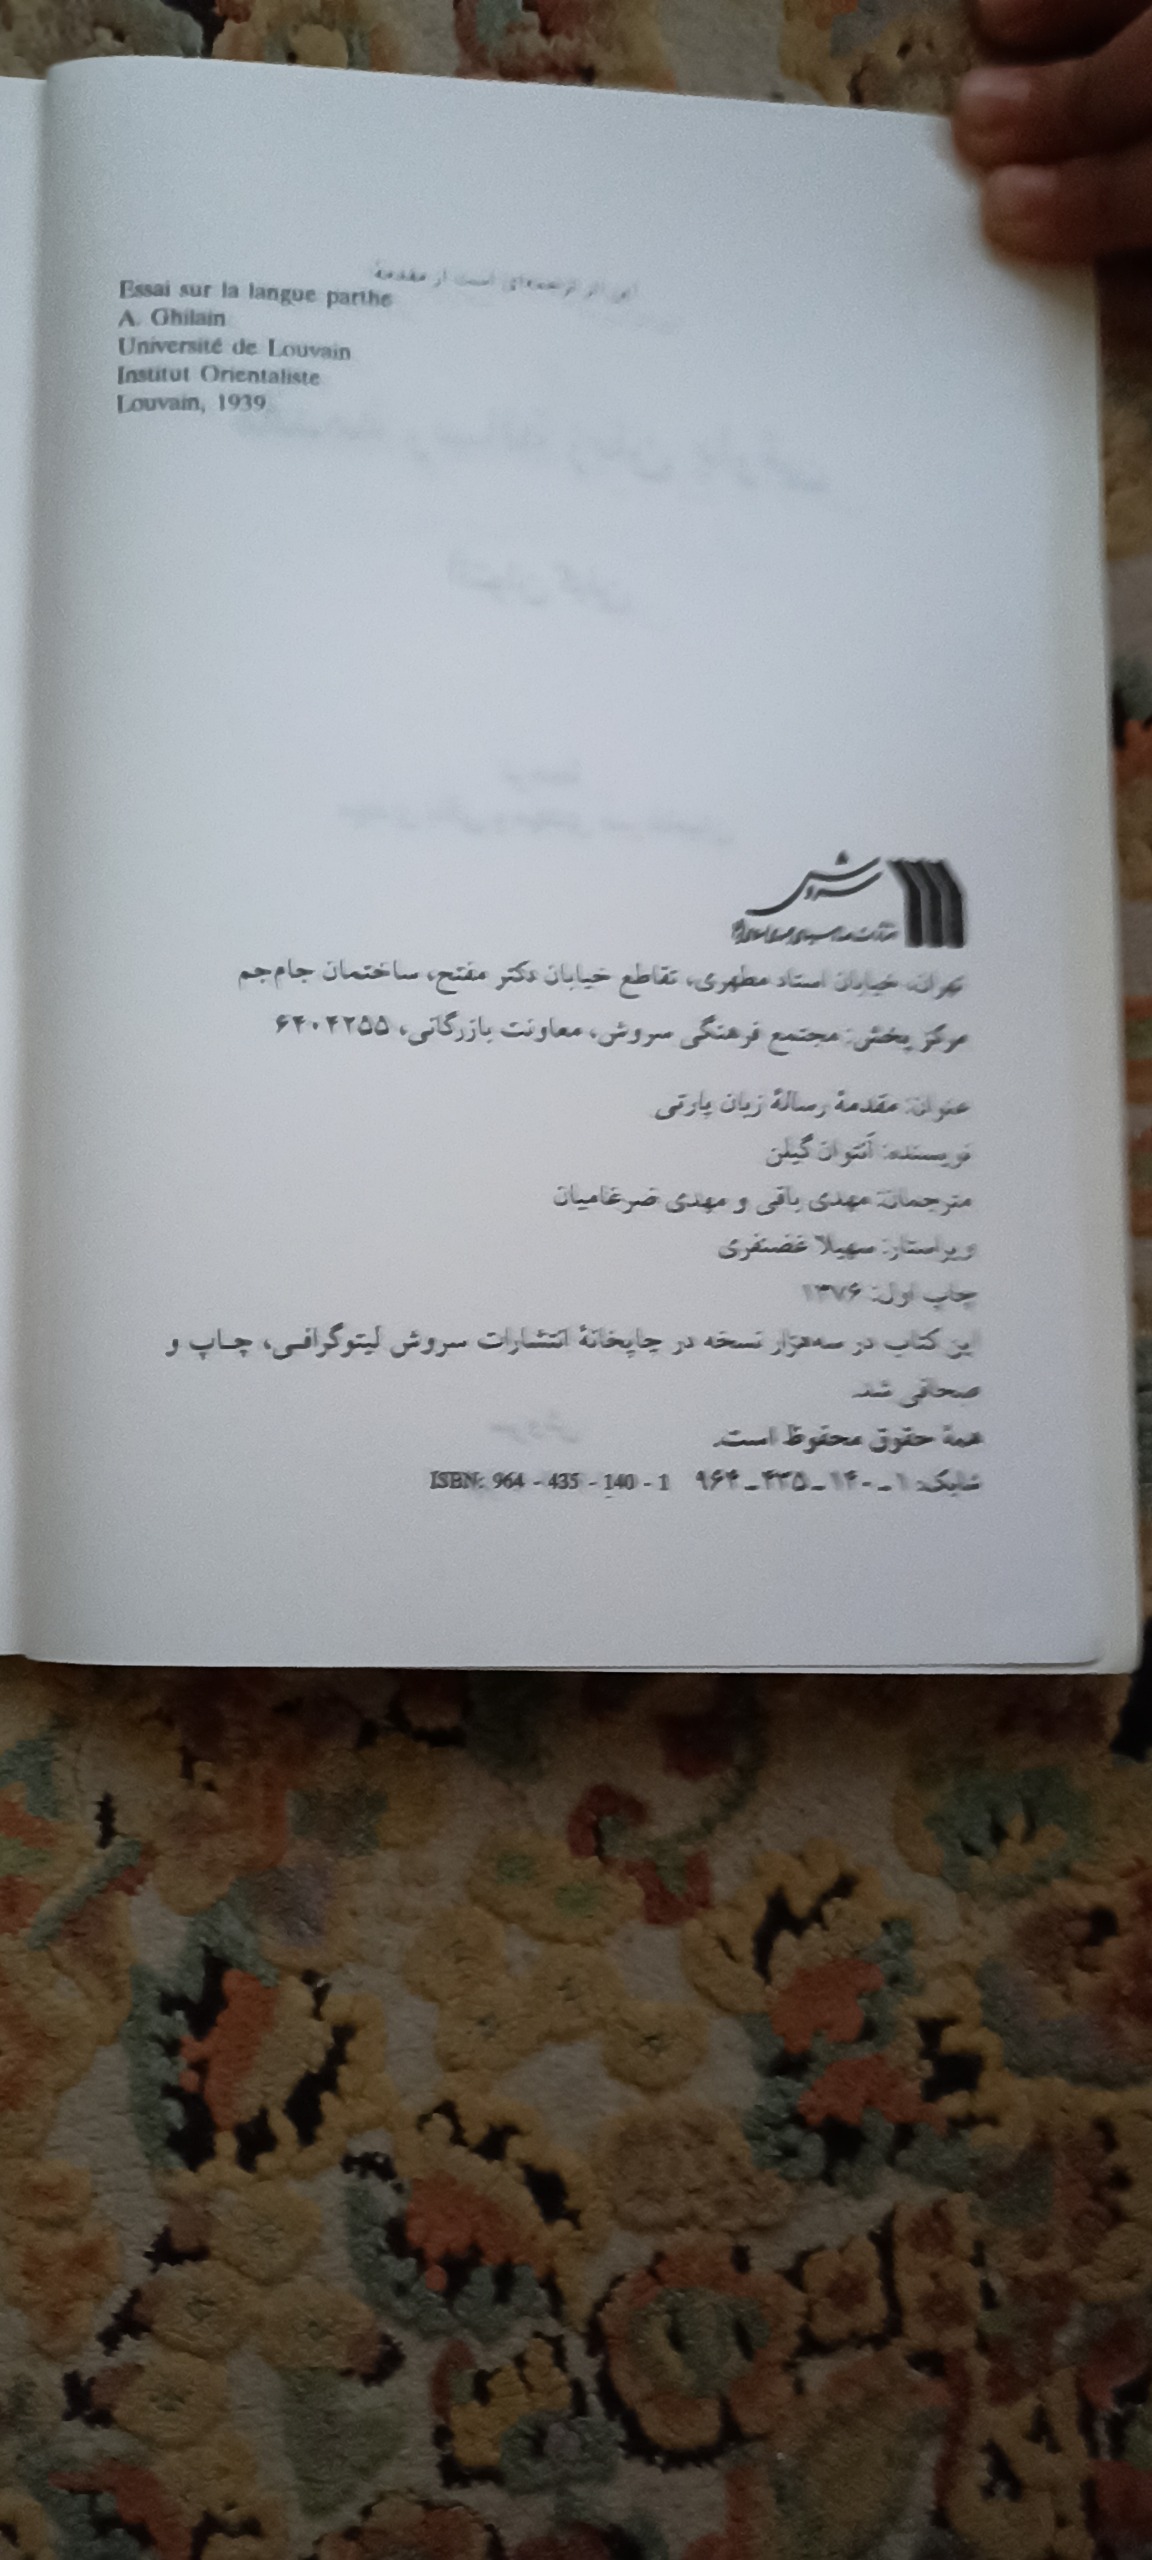 Essai sur la langue parthe
A. Ghilain
Université de Louvain
Institut Orientaliste
Louvain, 1939
سروش
تهران، خیابان استاد مطهری، تقاطع خیابان دکتر مفتح، ساختمان جام‌جم
مرکز پخش: مجتمع فرهنگی سروش، معاونت بازرگانی، ۶۴۰۴۲۵۵
عنوان: مقدمهٔ رسالهٔ زبان پارتی
نویسنده: آنتوان گیلن
مترجمان: مهدی باقی و مهدی ضرغامیان
ویراستار: سهیلا غضنفری
چاپ اول: ۱۳۷۶
این کتاب در سه‌هزار نسخه در چاپخانهٔ انتشارات سروش لیتوگرافی، چاپ و
صحافی شد.
همهٔ حقوق محفوظ است.
شابک: ۱ـ۱۴۰ـ۴۳۵ـ۹۶۴ ISBN: 964 - 435 - 140 - 1